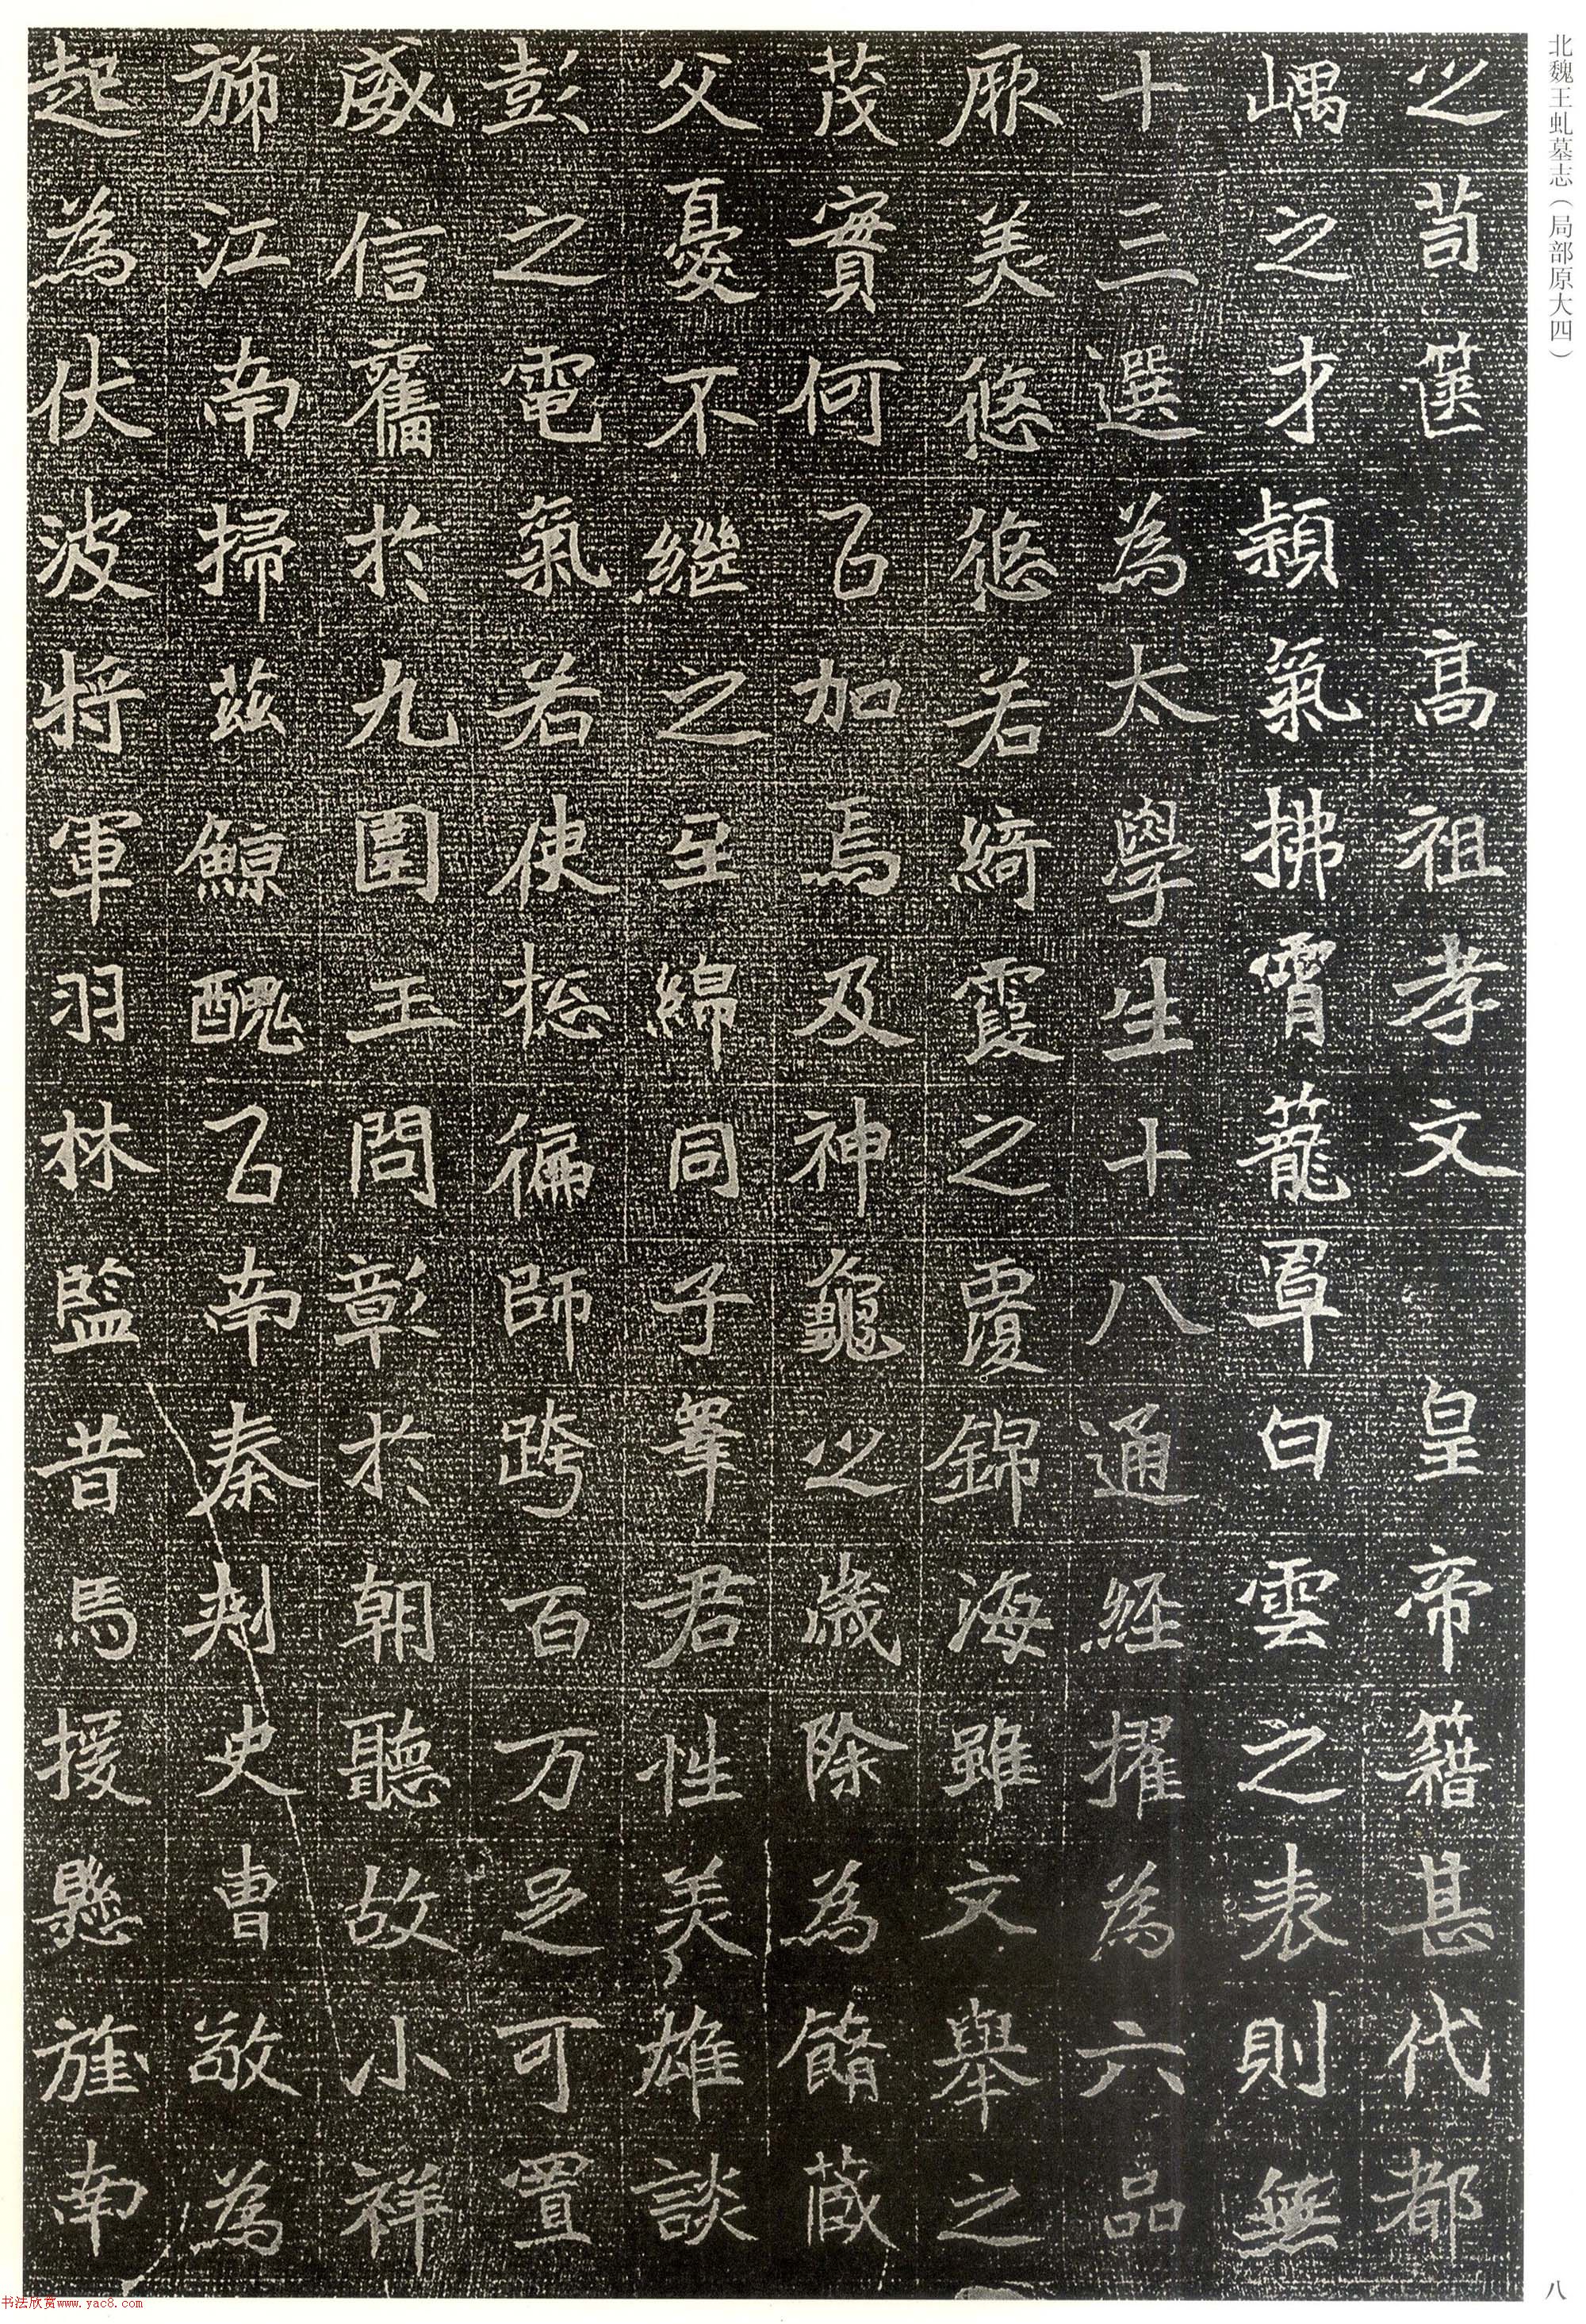 北魏王虬墓志（局部原大四）
之苟篋高祖孝文皇帝籍甚代都
嵎之才穎氣拂霄籠罩白雲之表則無
十三選為太學生十八通經擢為六品
厥美悠悠若綺霞之覆錦海雖文舉之
茂實何以加焉及神龜之歲除為
父憂不継之至綿同子羣君性美雄談
彭之電氣若使揔偏師跨百万足可置
威信舊於九圍玉問彰於朝聽故小祥
旆江南掃茲鯨醜以南秦刾史曹敬為
起為伏波將軍羽林監昔馬援懸旌南
八
书法欣赏www.yac8.com